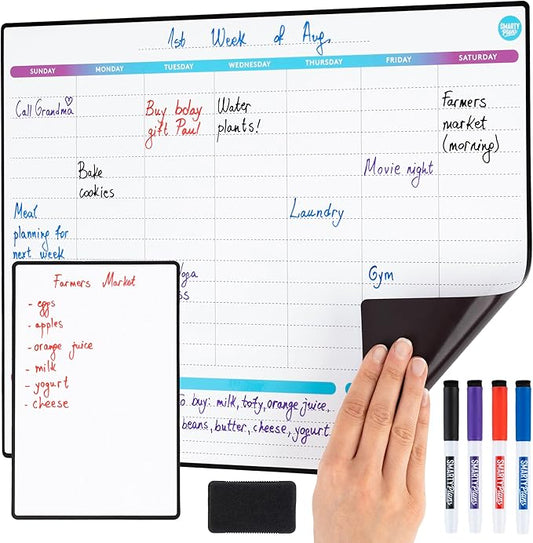 1st Week of Aug.
SMARTY
Plans
SUNDAY MONDAY TUESDAY WEDNESDAY THURSDAY FRIDAY SATURDAY
Call Grandma
Buy bday
gift Paul
Water
plants!
Farmers
market
(morning)
Bake
cookies
Movie night
Meal
planning for
next week
Laundry
Gym
Farmers Market
- eggs
- apples
- orange juice
- milk
- yogurt
- cheese
buy: milk, tofy, orange juice,
beans, butter, cheese, yogurt
SMARTYPlans
SMARTYPlans
SMARTYPlans
SMARTYPlans